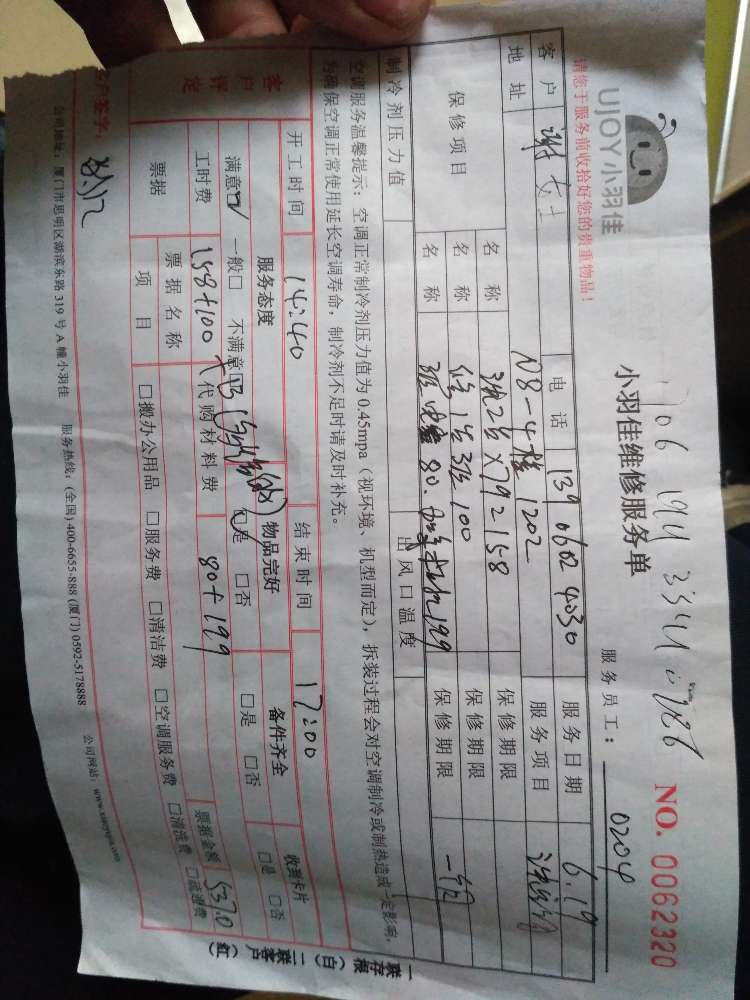 UJOY小羽佳
小羽佳维修服务单
NO. 0062320
请您于服务前收拾好您的贵重物品!
服务员工: 0204
客户 谢女士 电话 139 0602 4030 服务日期 6.19
地址 N8-4楼 1202 服务项目
保修项目 名称 洗2台×79 158 保修期限
名称 修1台3匹 100 保修期限
名称 80. 199 保修期限
制冷剂压力值 出风口温度
空调服务温馨提示: 空调正常制冷剂压力值为 0.45mpa (视环境、机型而定), 拆装过程会对空调制冷或制热造成一定影响,
为确保空调正常使用延长空调寿命, 制冷剂不足时请及时补充。
开工时间 14:40 结束时间 17:00
客户评定 服务态度 物品完好 备件齐全 收到卡片
满意☑ 一般□ 不满意□ □是 □否 □是 □否 □是 □否
工时费 158+100 代购材料费 80+199 票据金额 537.0
票据 票据名称
项目 □搬办公用品 □服务费 □清洁费 □空调服务费 □清洗费 □疏通费
客户签字:
公司地址: 厦门市思明区湖滨东路 319 号 A 幢小羽佳 服务热线: (全国) 400-6655-888 (厦门) 0592-5178888 公司网站:
一联存根 (白) 二联客户 (红)